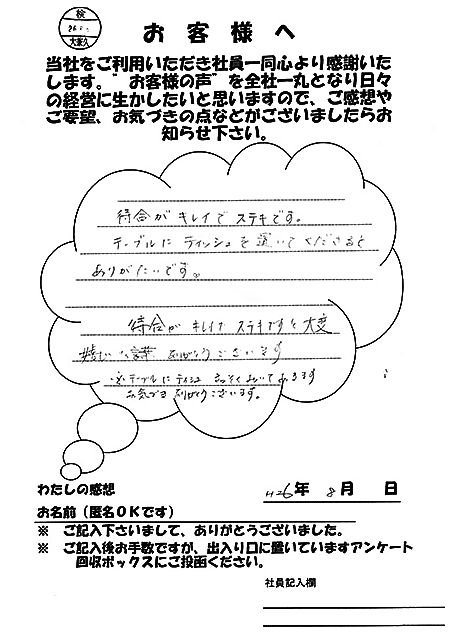 検
大東久
お客様へ
当社をご利用いただき社員一同心より感謝いた
します。"お客様の声"を全社一丸となり日々
の経営に生かしたいと思いますので、ご感想や
ご要望、お気づきの点などがございましたらお
知らせ下さい。
待合がキレイでステキです。
テーブルにティッシュを置いてくださると
ありがたいです。
待合がキレイでステキですと大変
嬉しいお言葉ありがとうございます
テーブルにティッシュ さっそくおいてあります
お気づきありがとうございます。
わたしの感想
H26年 8月 日
お名前(匿名OKです)
※ ご記入下さいまして、ありがとうございました。
※ ご記入後お手数ですが、出入り口に置いていますアンケート
回収ボックスにご投函ください。
社員記入欄